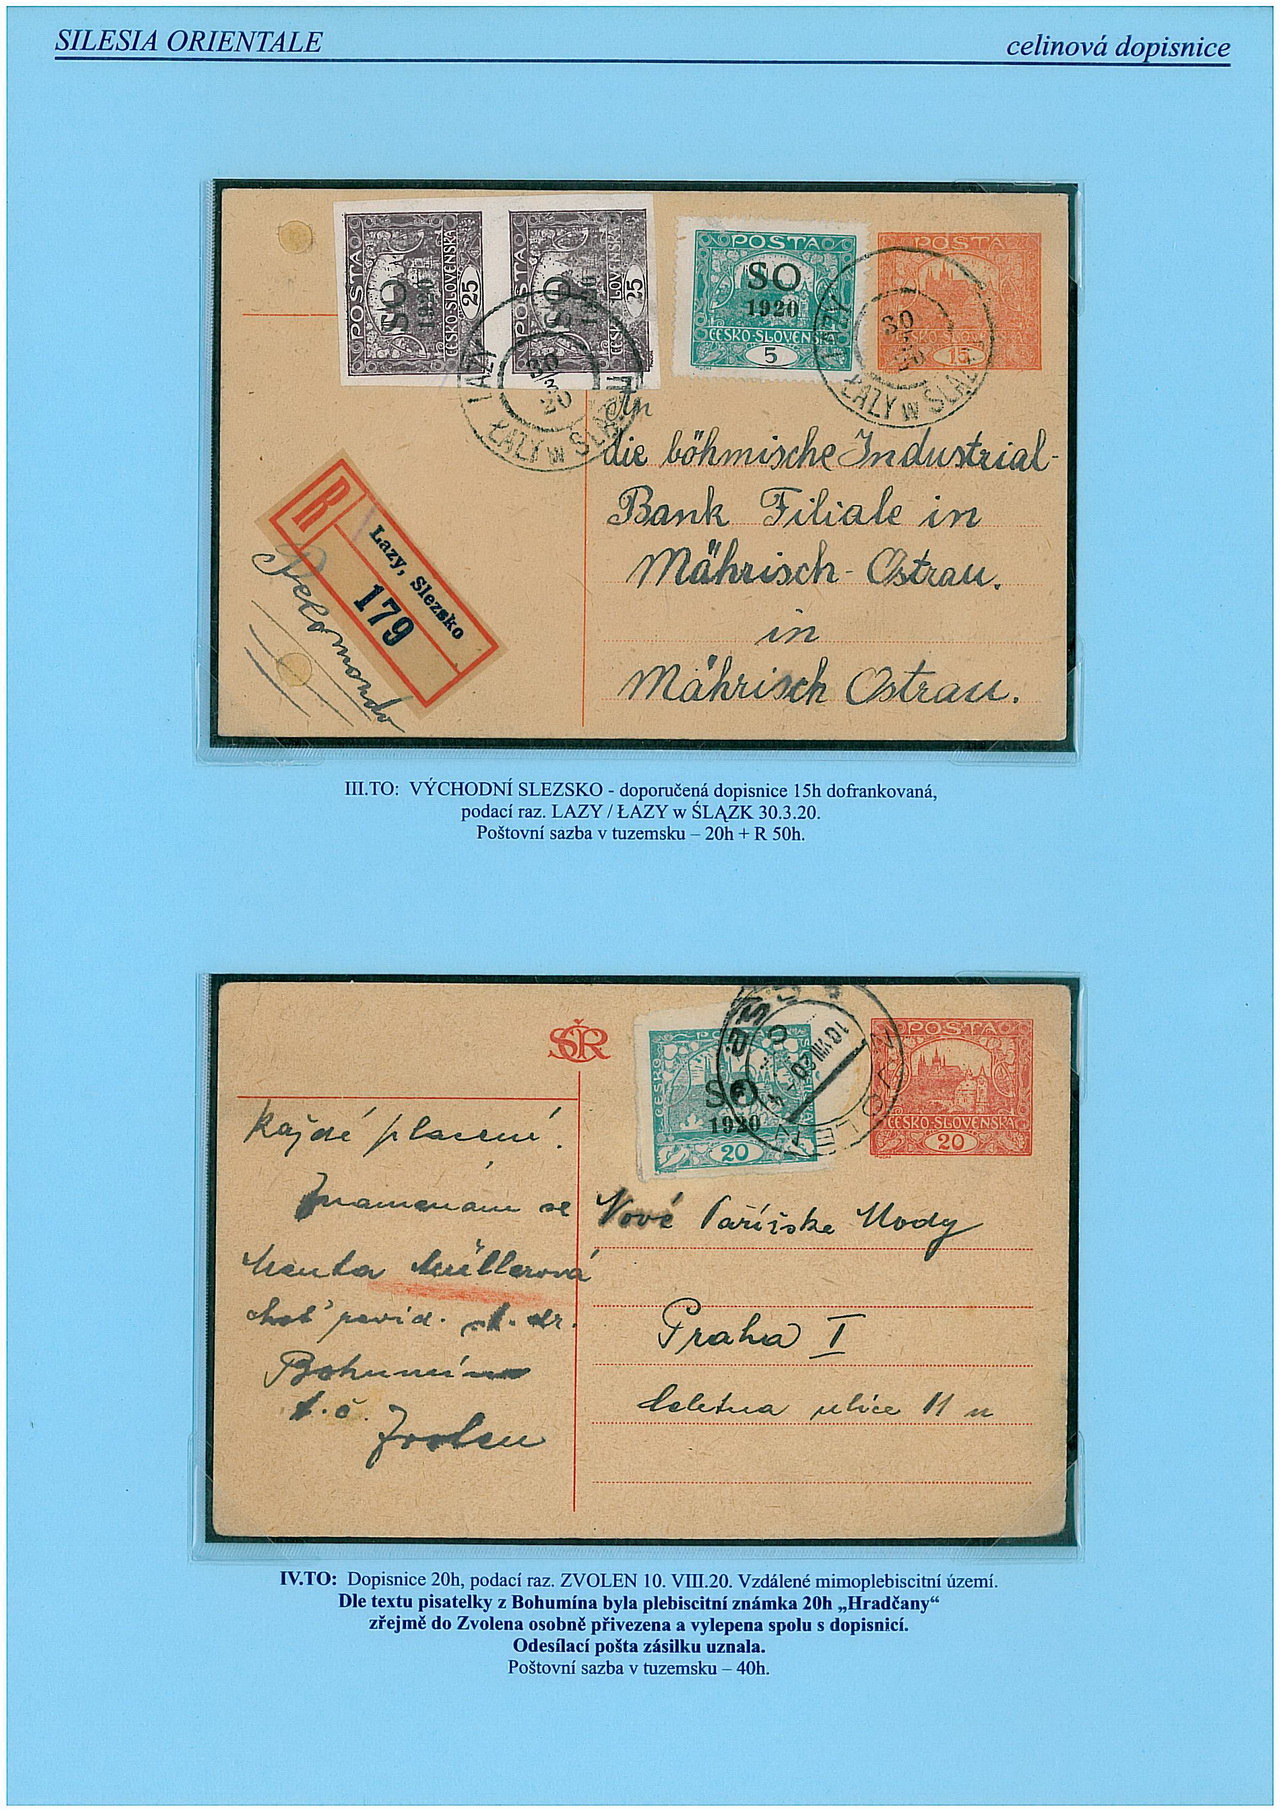 SILESIA ORIENTALE
celinová dopisnice
POSTA
SO
1920
ČESKO-SLOVENSKÁ
25
POSTA
SO
1920
ČESKO-SLOVENSKÁ
25
POSTA
SO
1920
ČESKO-SLOVENSKÁ
5
POSTA
ČESKO-SLOVENSKÁ
15
LAZY
30
20
ŁAZY w ŚLĄZK
LAZY
30
20
ŁAZY w ŚLĄZK
An
die böhmische Industrial-
Bank Filiale in
Mährisch-Ostrau.
in
Mährisch Ostrau.
R
Lazy, Slezsko
179
III.TO: VÝCHODNÍ SLEZSKO - doporučená dopisnice 15h dofrankovaná,
podací raz. LAZY / ŁAZY w ŚLĄZK 30.3.20.
Poštovní sazba v tuzemsku – 20h + R 50h.
ČSR
SO
1920
20
10.VIII.20
ZVOLEN
POSTA
ČESKO-SLOVENSKÁ
20
Každé placení.
Znamenám se
Müllerová
choť
Bohumín
t.č.
Zvolen
Nové Pařížske Mody
Praha I
Celetna ulice 11 n
IV.TO: Dopisnice 20h, podací raz. ZVOLEN 10. VIII.20. Vzdálené mimoplebiscitní území.
Dle textu pisatelky z Bohumína byla plebiscitní známka 20h „Hradčany“
zřejmě do Zvolena osobně přivezena a vylepena spolu s dopisnicí.
Odesílací pošta zásilku uznala.
Poštovní sazba v tuzemsku – 40h.